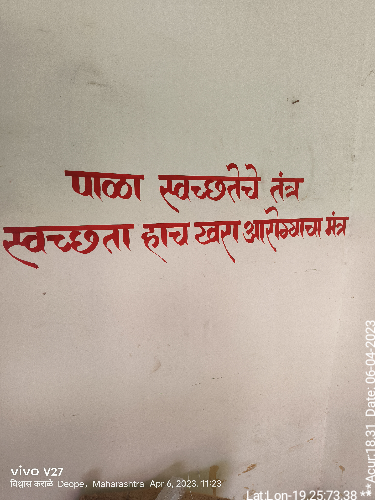 पाळा स्वच्छतेचे तंत्र
स्वच्छता हाच खरा आरोग्याचा मंत्र
vivo V27
विश्वास कराळे Deope, Maharashtra Apr 6, 2023, 11:23
Lat:Lon-19.25:73.38 **Acur:18.31 Date: 06-04-2023